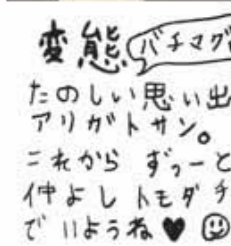 変態 バチマグ
たのしい思い出
アリガトサン。
これから ずっーと
仲よし トモダチ
で いようね♥☺